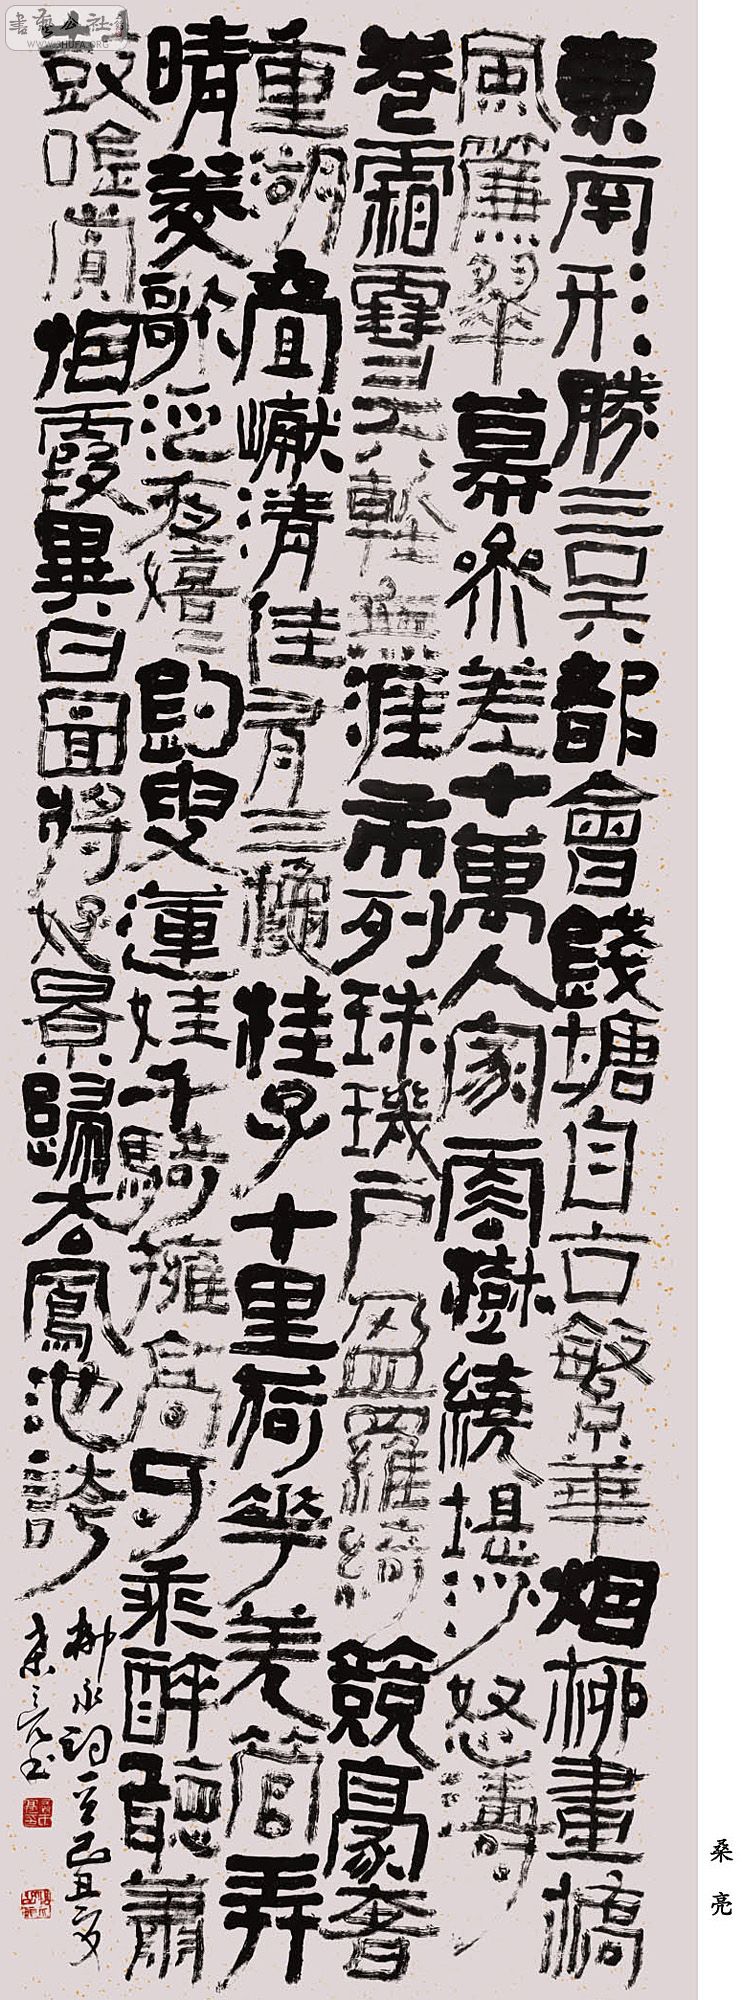 東南形勝三吳都會錢塘自古繁華烟柳畫橋
風簾翠幕參差十萬人家雲樹繞堤沙怒濤
卷霜雪天塹無涯市列珠璣戶盈羅綺競豪奢
重湖疊巘清佳有三秋桂子十里荷花羌管弄
晴菱歌泛夜嬉〻釣叟蓮娃千騎擁高牙乘醉聽蕭
鼓吟賞烟霞異日圖將好景歸去鳳池誇
柳永詞一首己丑夏
桑亮書
桑亮
書藝公社
WWW.SHUFA.ORG